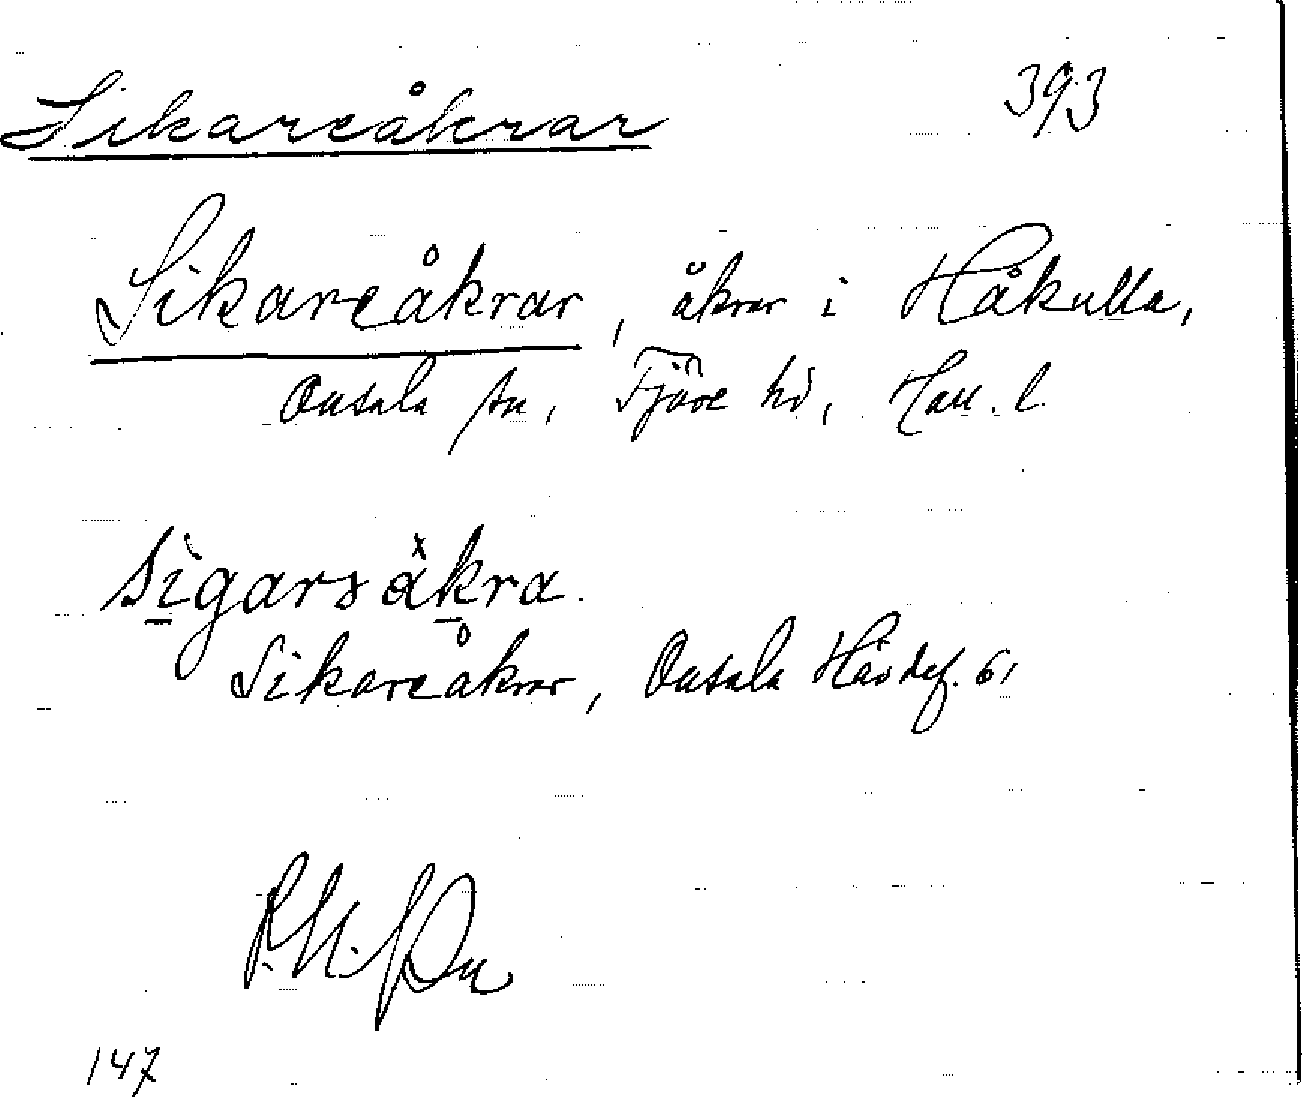 Sikareåkrar 393
Sikareåkrar, åkrar i Håkulla,
Onsala sn, Fjäre hd, Hall. l.
sigarsåkra.
Sikareåkrar, Onsala
147